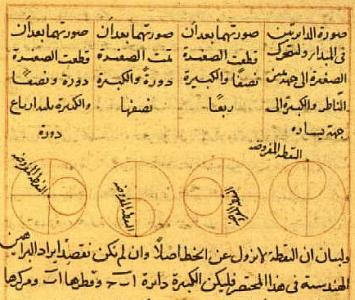 صورة الدايرتين
في المبدا ولتتحرك
الصغيرة الى جهة يمين
الناظر والكبيرة الى
جهة يساره
صورتهما بعد أن
قطعت الصغيرة
نصفًا والكبيرة
ربعًا
صورتهما بعد أن
تمت الصغيرة
دورة والكبيرة
نصفها
صورتهما بعد أن
قطعت الصغيرة
دورة ونصفًا
والكبيرة ثلثة ارباع
دورة
النقطة المفروضة
النقطة المفروضة
النقطة المفروضة
ولبيان ان النقطة لا تزول عن الخط اصلاً وان لم نكن نقصد ايراد البراهين
الهندسية في هذا المختصر فليكن الكبيرة دايرة وقطرها اب ومركزها